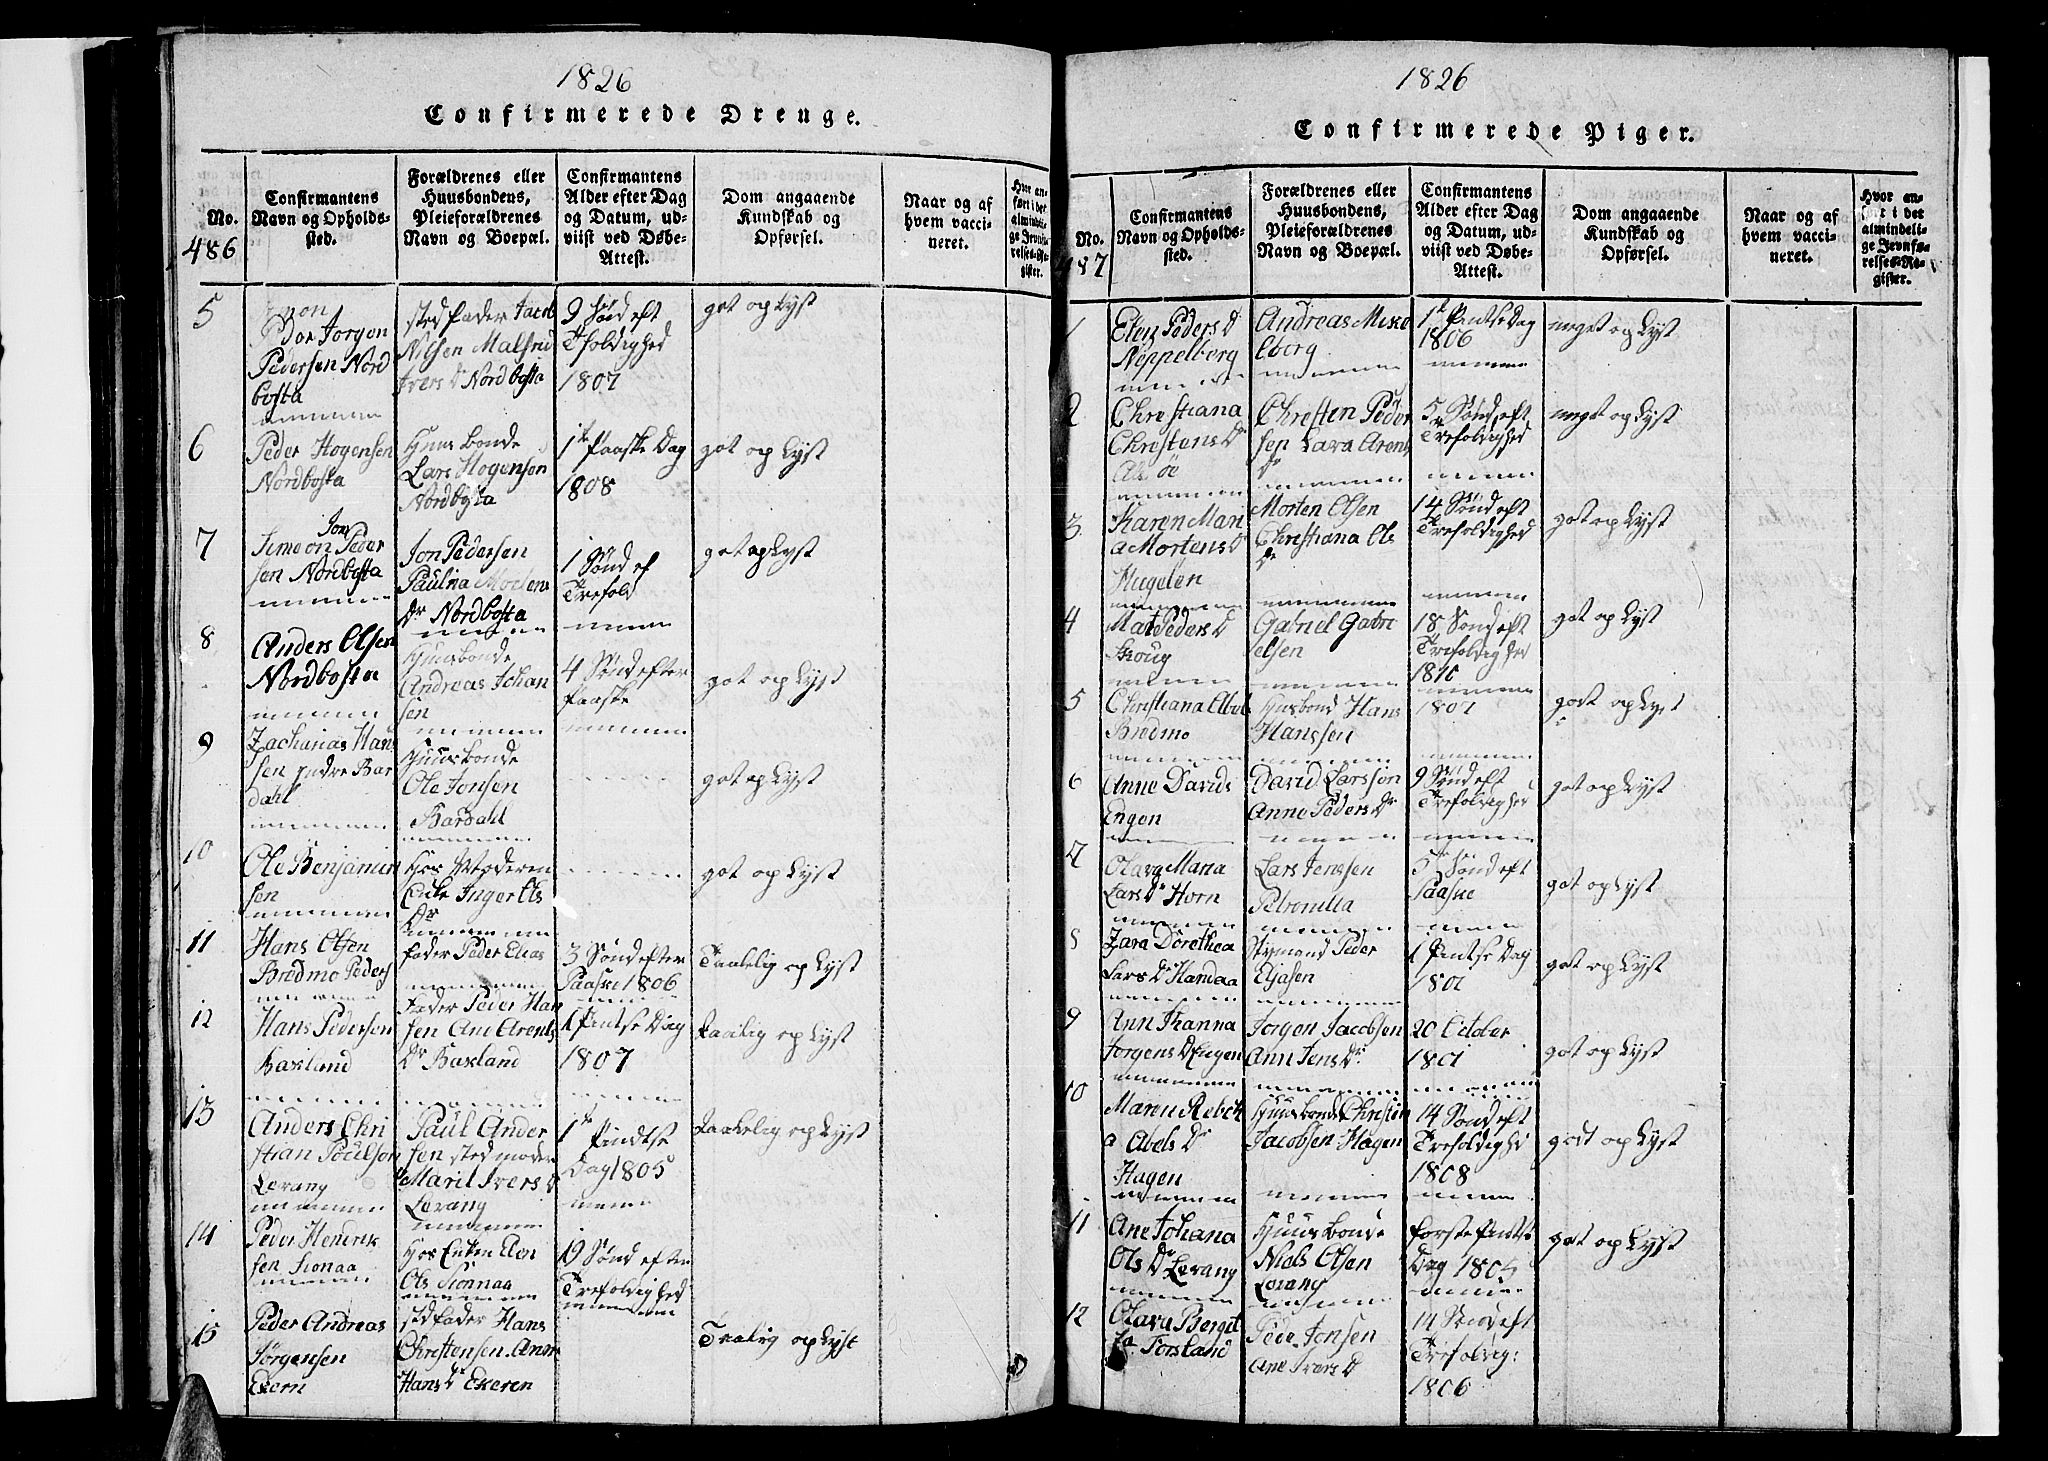 1826
Confirmerede Drenge.
No.
486
Confirmantens
Navn og Opholds-
sted.
Forældrenes eller
Huusbondens,
Pleieforældrenes
Navn og Boepæl.
Confirmantens
Alder efter Dag
og Datum, ud-
viist ved Døbe-
Attest.
Dom angaaende
Kundskab og
Opførsel.
Naar og af
hvem vacci-
neret.
Hvor an-
ført i det
almindeli-
ge Jevnfø-
relses-Re-
gister.
5
Jorgen
Pedersen Nord
bosta
sted fader Jacob
Nilsen Malfrid
Ivers Dr Nordbosta
9 Sönd eft
Tr foldighed
1807
got oplyst
6
Peder Hogensen
Nordbosta
Huusbonde
Lars Hogensen
Nordbosta
1te Paaske Dag
1808
got oplyst
7
Jon
Simeon Peder
sen Nordbosta
Jon Pedersen
Paulina Mortens
Dr Nordbosta
1 Sönd ef
Trefold
got oplyst
8
Anders Olsen
Nordbosta
Huusbonde
Andreas Johan
sen
4 Sönd efter
Paaske
got oplyst
9
Zacharias Hans
sen indre Bar
dahl
Huusbonde
Ole Jonsen
Bardahl
got oplyst
10
Ole Benjamin
sen
Hos Moderen
Enke Inger Ols
Dr
got oplyst
11
Hans Olsen
Bredmo Peders
fader Peder Elias
3 Sönd efter
Paaske 1806
Taalelig oplyst
12
Hans Pedersen
Baxland
Fader Peder Han
sen Ane Arents
Dr Baxland
1 Pintse Dag
1807
taalig oplyst
13
Anders Chri
stian Poulson
Levang
Paul Ander
sen sted moder
Marit Ivers D
Levang
1te Pindtse
Dag 1805
taalelig oplyst
14
Peder Henrik
sen Sionaa
Hos Enken Elen
Ols Sionnaa
19 Sönd efter
Trefoldighed
15
Peder Andreas
Jørgensen
Ekern
sted fader Hans
Christensen Anne
Hans Dr Ekeren
Taalig oplyst
1826
Confirmerede Piger.
No.
487
Confirmantens
Navn og Opholds-
sted.
Forældrenes eller
Huusbondens,
Pleieforældrenes
Navn og Boepæl.
Confirmantens
Alder efter Dag
og Datum, ud-
viist ved Døbe-
Attest.
Dom angaaende
Kundskab og
Opførsel.
Naar og af
hvem vacci-
neret.
Hvor an-
ført i det
almindeli-
ge Jevnfø-
relses-Re-
gister.
1
Elen Peders Dr
Neppelberg
Andreas Miko
lberg
1te Pintse Dag
1806
meget oplyst
2
Christiana
Christens Dr
Als öe
Christen Peder
sen Lava Arents
Dr
5 Sönd eft
Trefoldighed
meget oplyst
3
Karen Mari
a Mortens Dr
Hugelen
Morten Olsen
Christiana Ols
Dr
14 Sönd eft
Trefoldighed
got oplyst
4
Mat Peders Dr
Skoug
Gabriel Gabri
elsen
18 Sönd eft
Trefoldighed
1810
got oplyst
5
Christiana
Bredmo
Husbond Hans
Hanssen
1807
godt oplyst
6
Anne Davids
Engen
David Larssön
Anne Peders Dr
9 Sönd eft
Trefoldighed
got oplyst
7
Olava Maria
Lars Dr Horn
Lars Jenssen
Petronilla
5te Sönd eft
Paaske
got oplyst
8
Zara Dorethea
Lars Dr Handaa
Styrmand Peder
Eliasen
1 Pintse Dag
1801
got oplyst
9
Ann Ihanna
Jorgens D Engen
Jorgen Jacobsen
Ann Jens Dr
20 October
1801
got oplyst
10
Maren Rebek
a Abels Dr
Hagen
Huusbonde Christen
Jacobsen Hagen
14 Sönd eft
Trefoldighd
1808
godt oplyst
11
Ane Johana
Ols Dr Levang
Huusbonde
Niels Olsen
Levang
forste Pintse
Dag 1805
got oplyst
12
Olava Bergit
ta Forsland
Peder Jonsen
Ane Ivers D
14 Sönd eft
Trefoldig:
1806